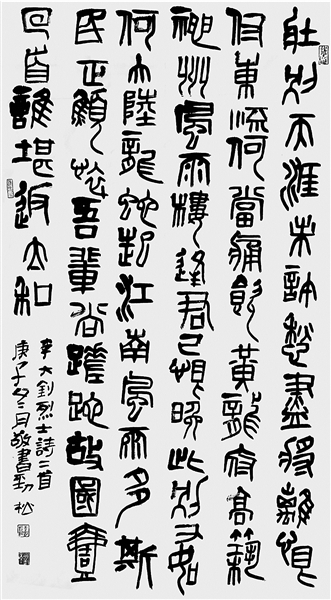 壯別天涯未許愁盡將離恨
付東流何當痛飲黃龍府高築
神州風雨樓逢君已恨晚此別又如
何大陸龍蛇起江南風雨多斯
民正顦悴吾輩尚蹉跎故國壹
回首誰堪返太和
李大釗烈士詩二首
庚子冬月敬書勁松